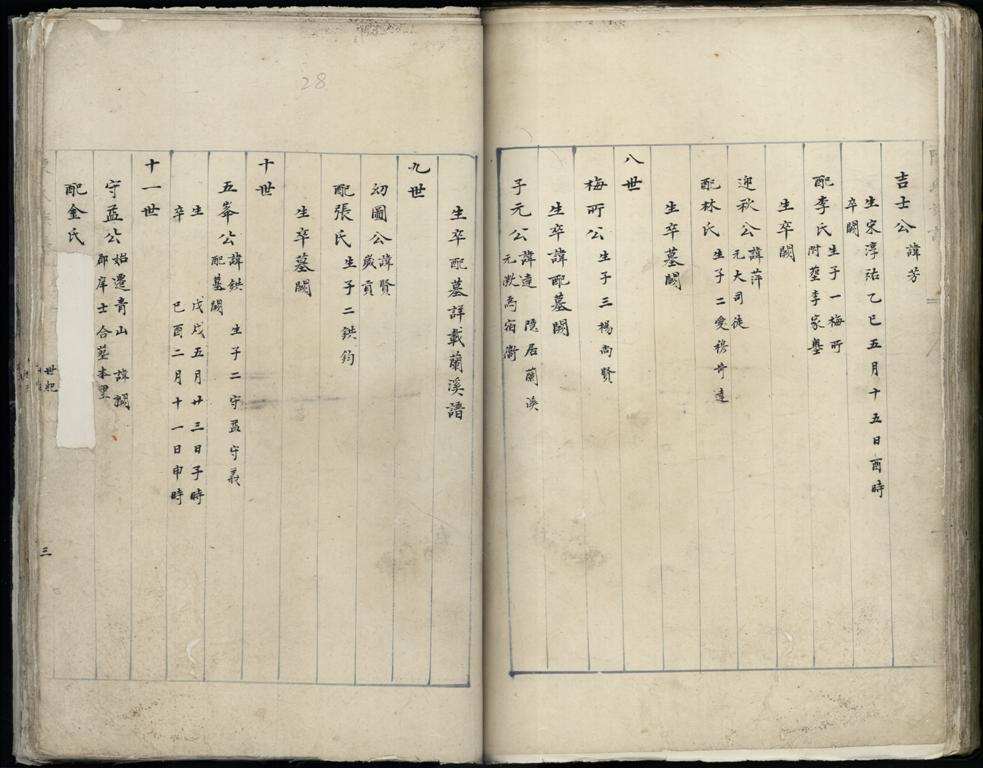 28
吉士公 諱芳
生宋淳祐乙巳五月十五日酉時
卒闕
配李氏 生子一梅所
附塟李家壟
生卒闕
迎秋公 諱萍
元大司徒
配林氏 生子二愛穆
生卒墓闕
八世
梅所公 生子三楊尚賢
生卒諱配墓闕
子元公 諱達 隱居蘭溪
元
生卒配墓詳載蘭溪譜
九世
幻圃公 諱賢
歲貢
配張氏 生子二鉷鈞
生卒墓闕
十世
五峯公 諱鉷 生子二守孟守義
配墓闕
生 戊戌五月廿三日子時
卒 巳酉二月十一日申時
十一世
守孟公 始遷青山
郡庠士合墓本里
配金氏
世紀
三